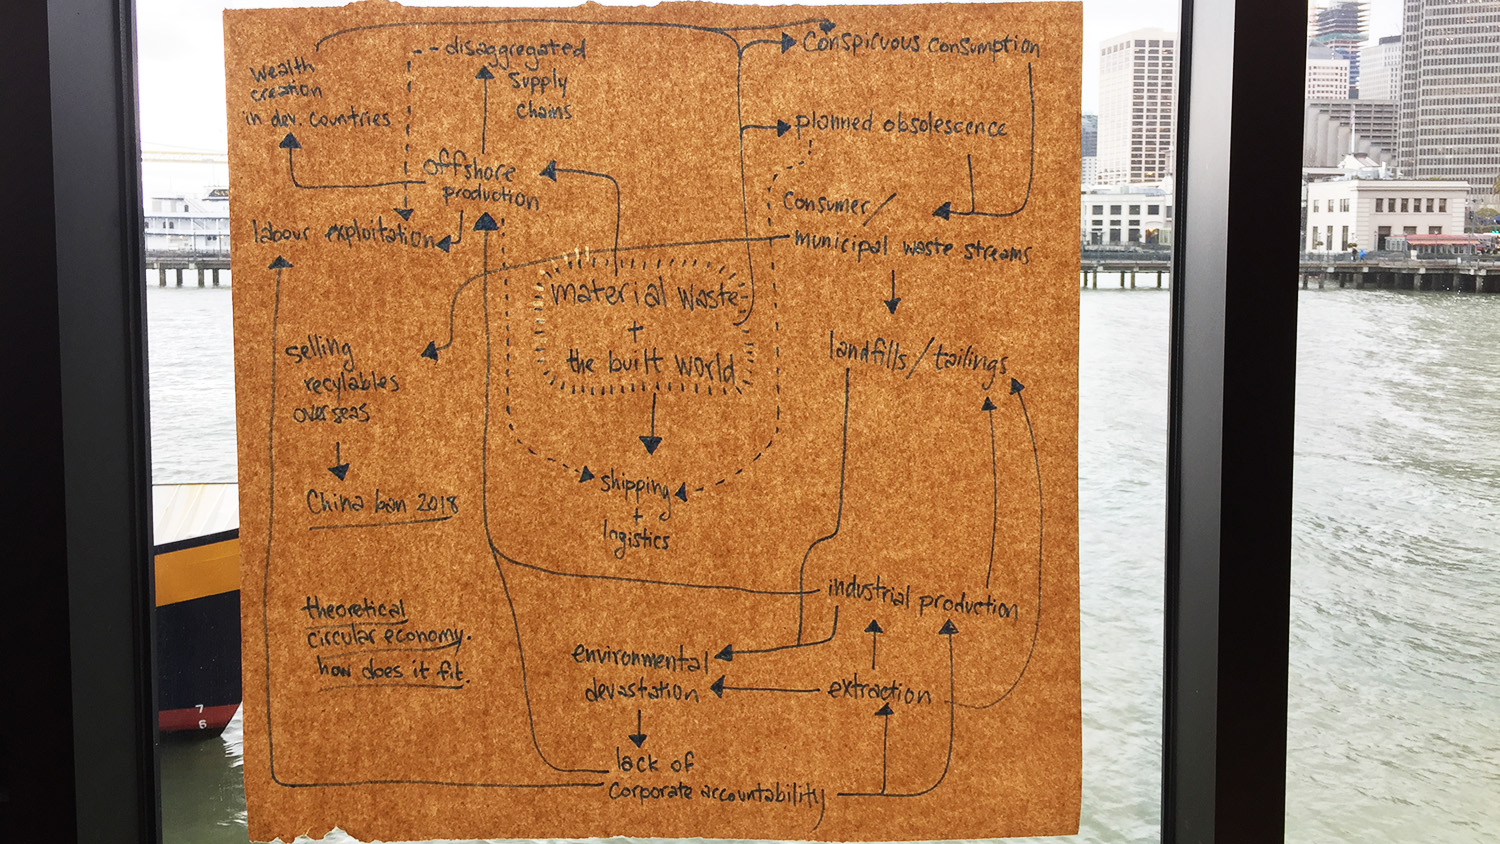 wealth
creation
in dev. countries
disaggregated
supply
chains
conspicuous consumption
planned obsolescence
offshore
production
consumer/
municipal waste streams
labour exploitation
material waste
+
the built world
landfills/tailings
selling
recylables
overseas
China ban 2018
shipping
+
logistics
industrial production
theoretical
circular economy.
how does it fit.
environmental
devastation
extraction
lack of
corporate accountability
7
6